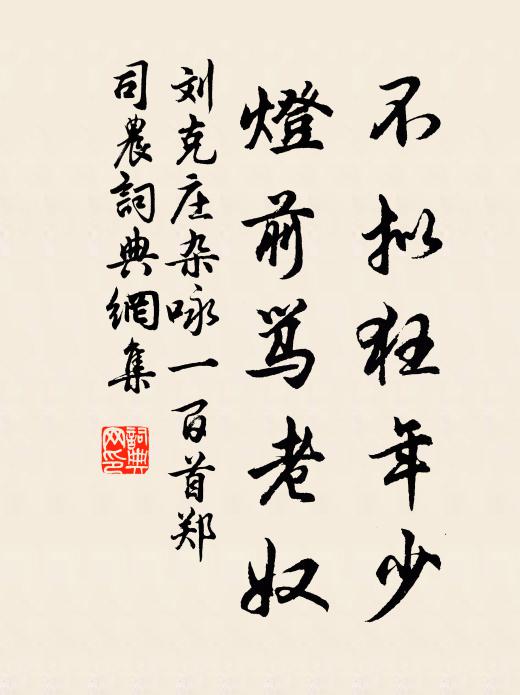 不拟狂年少
燈前骂老奴
刘克庄杂咏一百首郑
司農詞典網集
詞典
网印